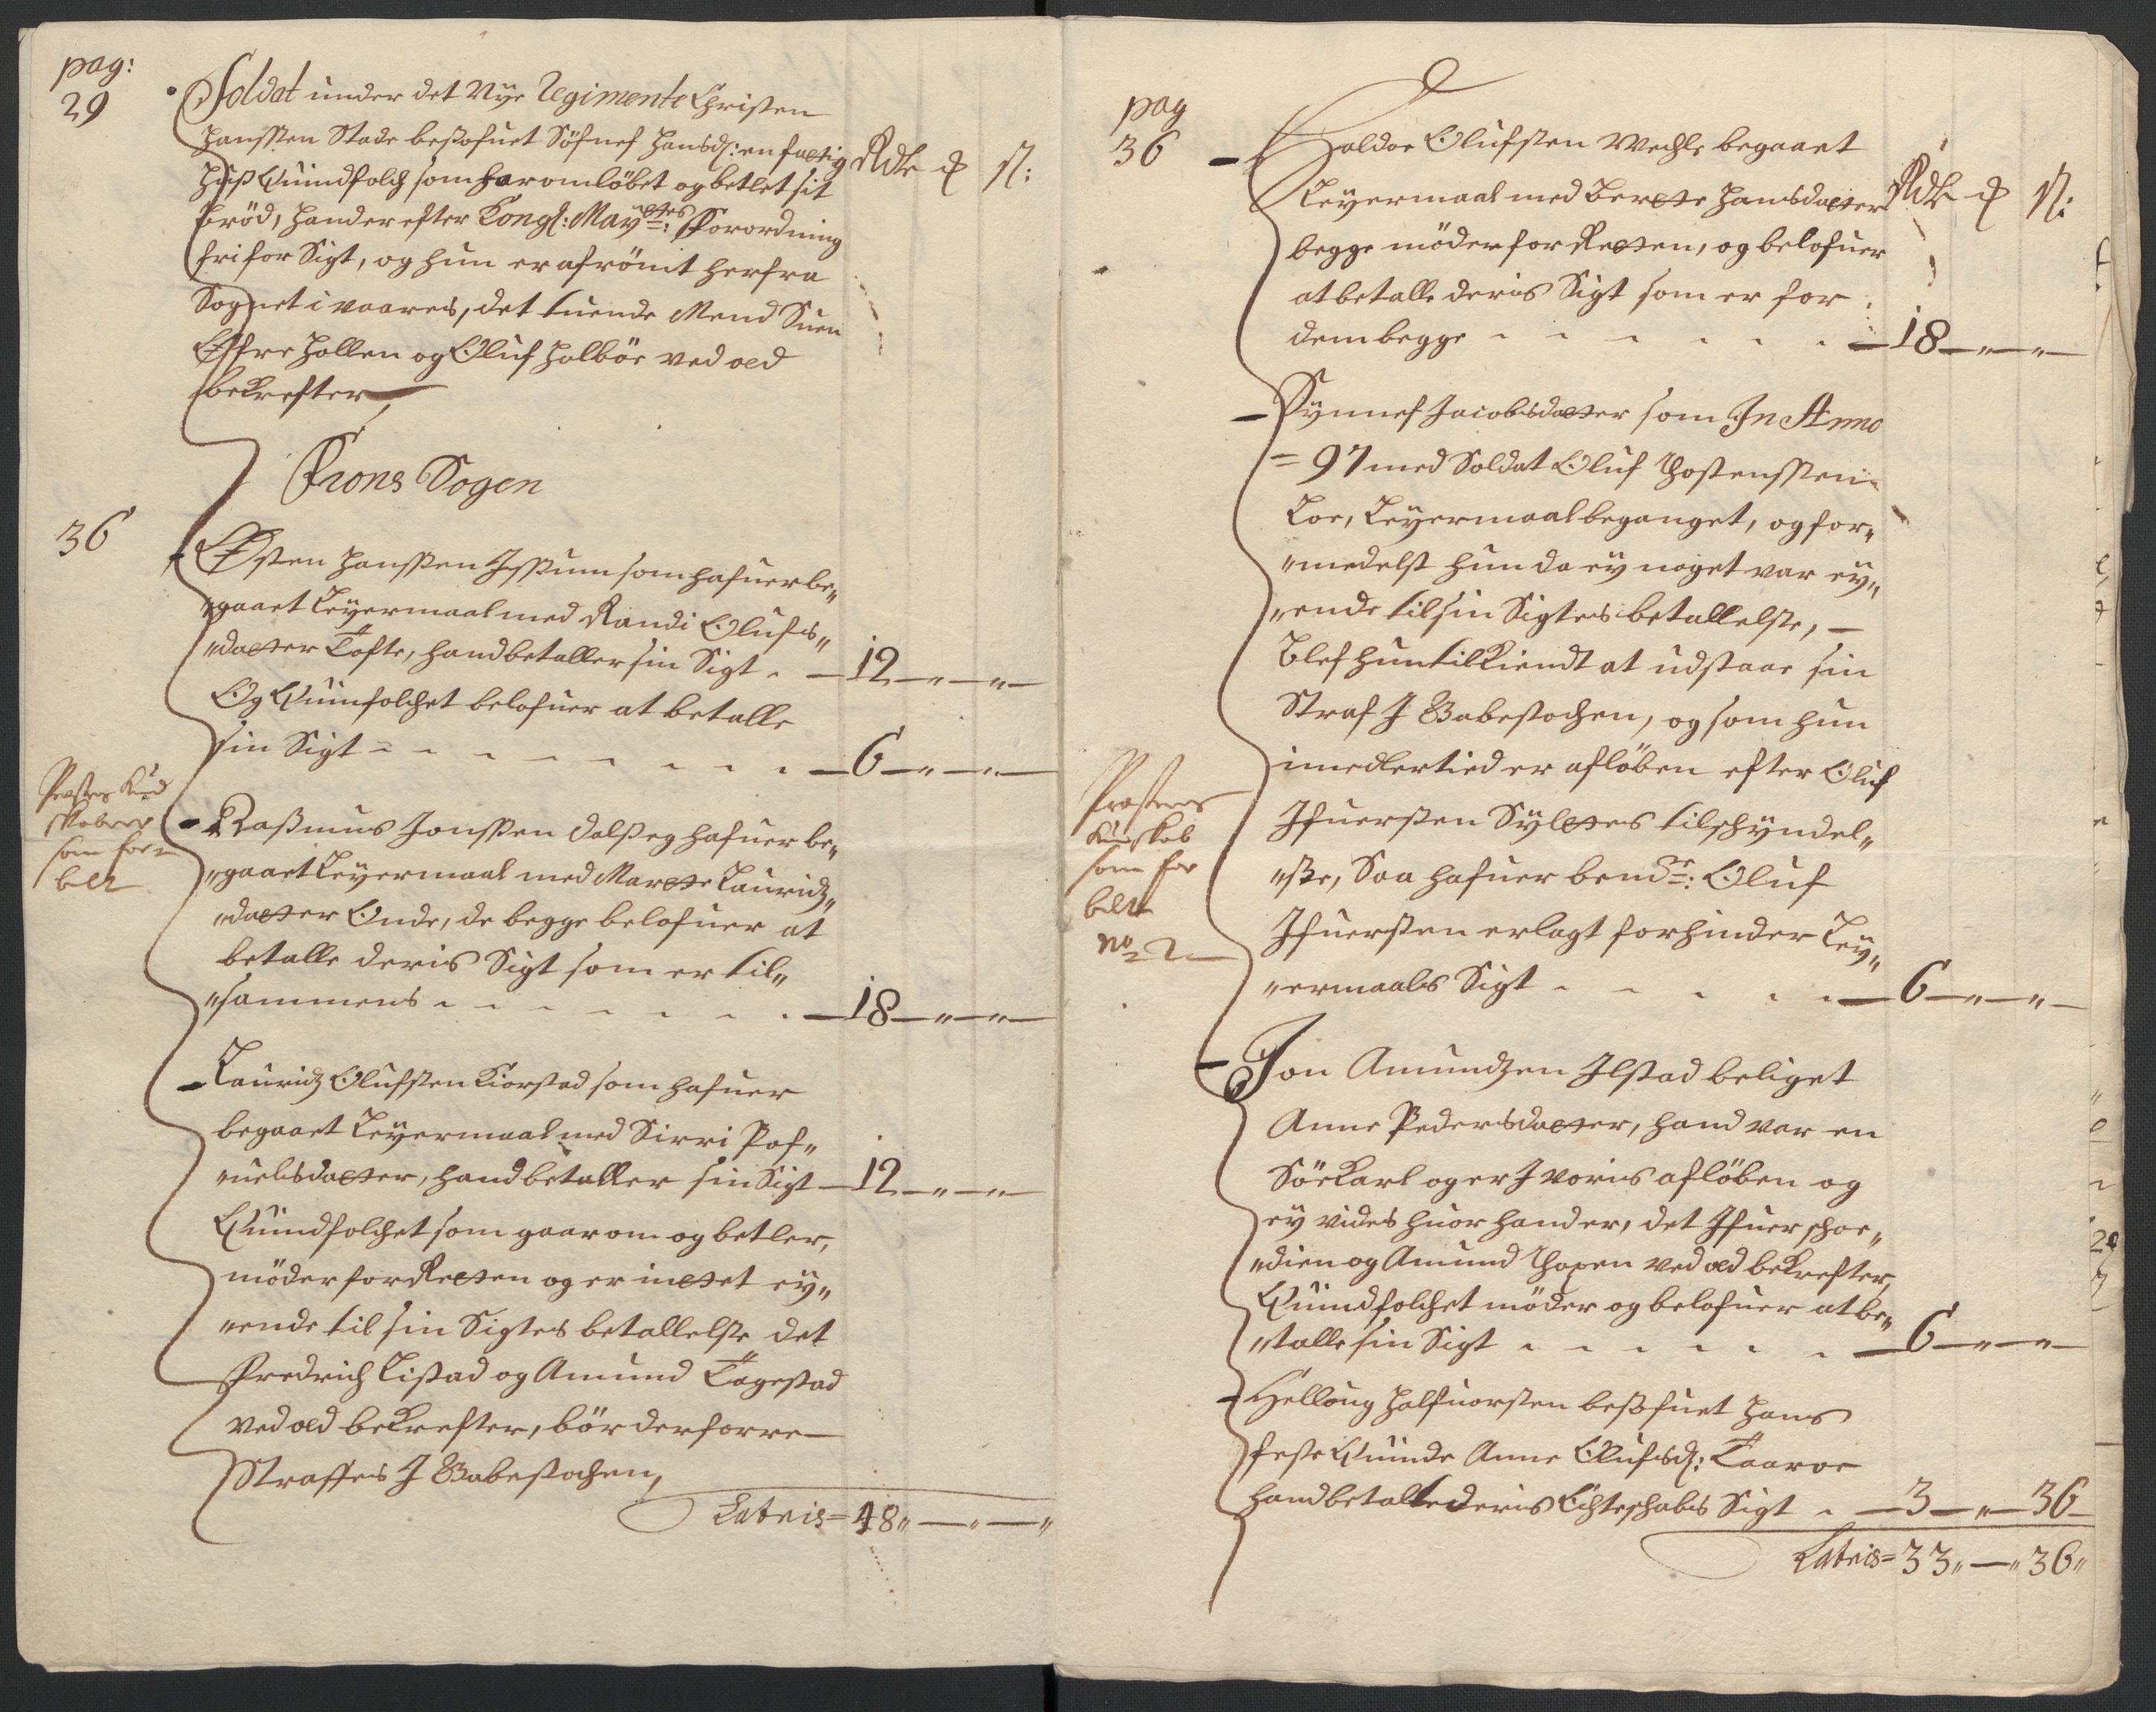 pag:
29
Soldat under det Nye Regimente Christen
Hanssen Stade besofuet Söfnef Hansd: en fattig
Huß Quindfolch som har omløbet og betlet sit
brød, Hand er efter Kongl: May: Forordning
fri for Sigt, og hun er afrömt herfra
Sognet i vaares, det tuende Mend Suen
Øfre Hollen og Oluf Holböe ved æd
bekrefter
Rdr
Frons Sogen
36
Østen Hanssen Issum som hafuer be„
„gaaet Leyermaal med Randi Olufs„
„daatter Tofte, hand betaller sin Sigt 12 „ „
Og Quinfolchet belofuer at betalle
sin Sigt 6 „ „
som for
belt
Raßmus Jonssen Dalseg hafuer be„
„gaaet Leyermaal med Marete Lauridz„
„daatter Onde, de begge belofuer at
betalle deris Sigt som er til„
„sammens 18 „ „
Lauridz Olufssen Kiorstad som hafuer
begaaet Leyermaal med Sirri Pof„
„uelsdaatter, hand betaller sin Sigt 12 „ „
Quindfolchet som gaar om og betler,
møder for Retten og er intet ey„
„ende til sin Sigtes betallelse det
Fredrich Listad og Amund Tagestad
ved æd bekrefter, bör derforre
Straffes J Gabestochen,
Lateris = 48 „ „
pag
36
Haldor Olufssen Wechle begaaet
Leyermaal med Berete Hansdaatter
Rdr
begge möder for Retten, og belofuer
at betalle deris Sigt som er for
dem begge 18 „ „
Synnef Jacobsdaatter som In Anno
= 97 med Soldat Oluf Thostenssen
Loe, Leyermaal beganget, og for„
„medelst hun da ey noget var ey„
„ende til sin Sigtes betallelse,
blef hun tilkiendt at udstaae sin
Straf J Gabestochen, og som hun
imedlertied er afløben efter Oluf
Ifuerssen Syltes tilschyndel„
„ße, Saa hafuer bemte: Oluf
Ifuerssen erlagt for hinder Ley„
„ermaals Sigt 6 „ „
Præstens
Kundskab
som for
belt
No 2
Jon Amundzen Ilstad beliget
Anne Pedersdaatter, hand var en
Söekarl og er J voris afløben og
ey vides huor hand er, det Ifuer schoe„
„dien og Amund Thopen ved æd bekrefter,
Quindfolchet möder og belofuer at be„
„talle sin Sigt 6 „ „
Helloug Halfuorssen besofuet Hans
feste Quinde Anne Olufsd: Taaroe
hand betalte deris Echteschabs Sigt 3 „ 36
Lateris = 33 „ „ 36 „